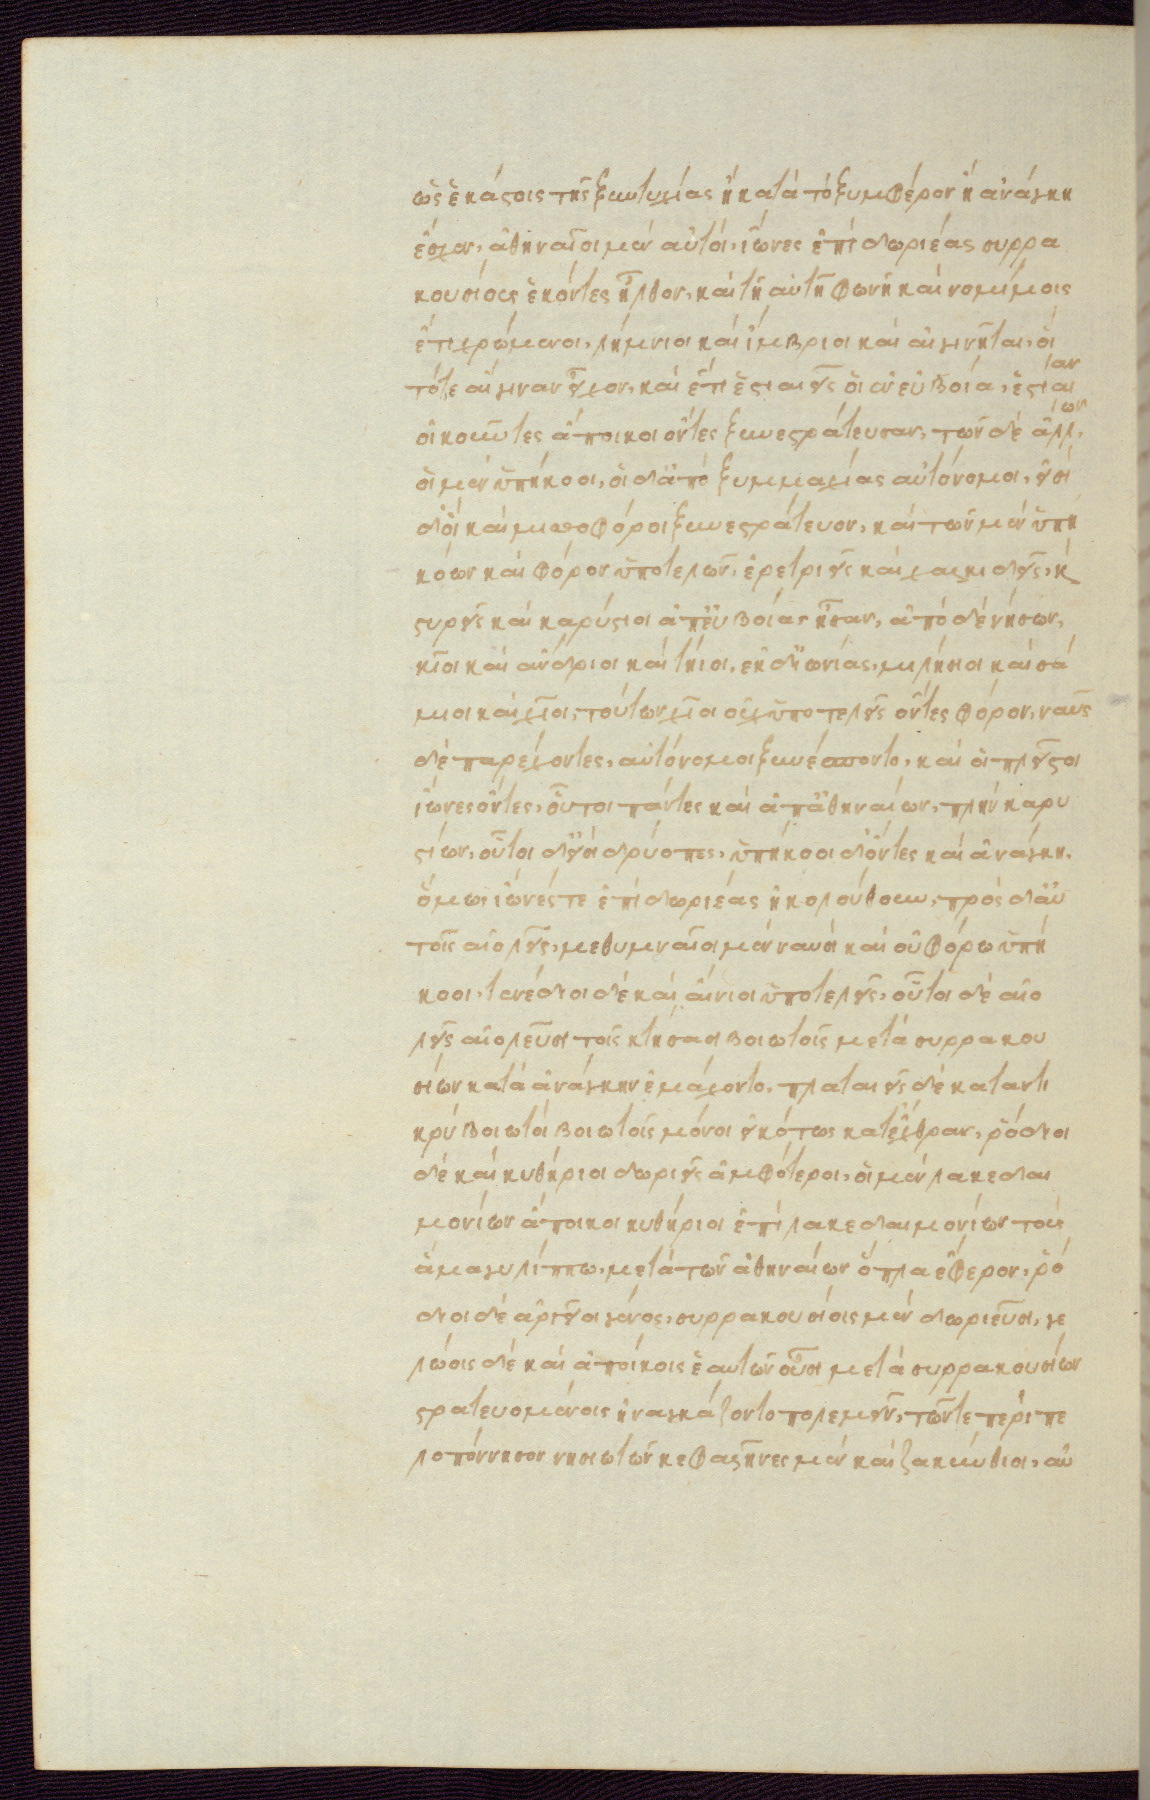 ὡς ἑκάστοις τῆς ξυντυχίας ἢ κατὰ τὸ ξυμφέρον ἢ ἀνάγκη
ἔσχεν, ἀθηναῖοι μὲν αὐτοὶ, ἴωνες ἐπὶ δωριέας συρρα
κουσίους ἑκόντες ἦλθον, καὶ τῇ αὐτῇ φωνῇ καὶ νομίμοις
ἔτι χρώμενοι, λήμνιοι καὶ ἴμβριοι καὶ αἰγινῆται, οἳ
τότε αἴγιναν εἶχον, καὶ ἔτι ἑστιαιεῖς οἱ ἐν εὐβοίᾳ, ἑστίαιαν
οἰκοῦντες ἄποικοι ὄντες ξυνεστράτευσαν, τῶν δὲ ἄλλων,
οἱ μὲν ὑπήκοοι, οἱ δ' ἀπὸ ξυμμαχίας αὐτόνομοι, εἰσὶ
δ' οἳ καὶ μισθοφόροι ξυνεστράτευον, καὶ τῶν μὲν ὑπη
κόων καὶ φόρον ὑποτελῶν, ἐρετριεῖς καὶ χαλκιδεῖς, κ
στυρεῖς καὶ καρύστιοι ἀπ' εὐβοίας ἦσαν, ἀπὸ δὲ νήσων,
κῖοι καὶ ἄνδριοι καὶ τήιοι, ἐκ δ' ἰωνίας, μιλήσιοι καὶ σά
μιοι καὶ χῖοι, τούτων χῖοι οὐχ ὑποτελεῖς ὄντες φόρον, ναῦς
δὲ παρέχοντες, αὐτόνομοι ξυνέσποντο, καὶ οἱ πλεῖστοι
ἴωνες ὄντες, οὗτοι πάντες καὶ ἀπ' ἀθηναίων, πλὴν καρυ
στίων, οὗτοι δ' εἰσὶ δρύοπες, ὑπήκοοι δ' ὄντες καὶ ἀνάγκῃ.
ὅμως ἴωνές τε ἐπὶ δωριέας ἠκολούθουν, πρὸς δ' αὖ
τοῖς αἰολεῖς, μεθυμναῖοι μὲν ναυσὶ καὶ οὐ φόρῳ ὑπή
κοοι, τενέδιοι δὲ καὶ αἴνιοι ὑποτελεῖς, οὗτοι δὲ αἰο
λεῖς αἰολεῦσι τοῖς κτήσασι βοιωτοῖς μετὰ συρρακου
σίων κατὰ ἀνάγκην ἐμάχοντο, πλαταιεῖς δὲ καταντι
κρὺ βοιωτοὶ βοιωτοῖς μόνοι εἰκότως κατ' ἔχθραν, ῥόδιοι
δὲ καὶ κυθήριοι δωριεῖς ἀμφότεροι, οἱ μὲν λακεδαι
μονίων ἄποικοι κυθήριοι ἐπὶ λακεδαιμονίων τοὺς
ἅμα γυλίππῳ, μετὰ τῶν ἀθηναίων ὅπλα ἔφερον, ῥό
διοι δὲ ἀργεῖοι γένος, συρρακουσίοις μὲν δωριεῦσι, γε
λώοις δὲ καὶ ἀποίκοις ἑαυτῶν οὖσι μετὰ συρρακουσίων
στρατευομένοις ἠναγκάζοντο πολεμεῖν, τῶν τε περὶ πε
λοπόννησον νησιωτῶν κεφαλῆνες μὲν καὶ ζακύνθιοι, αὐ